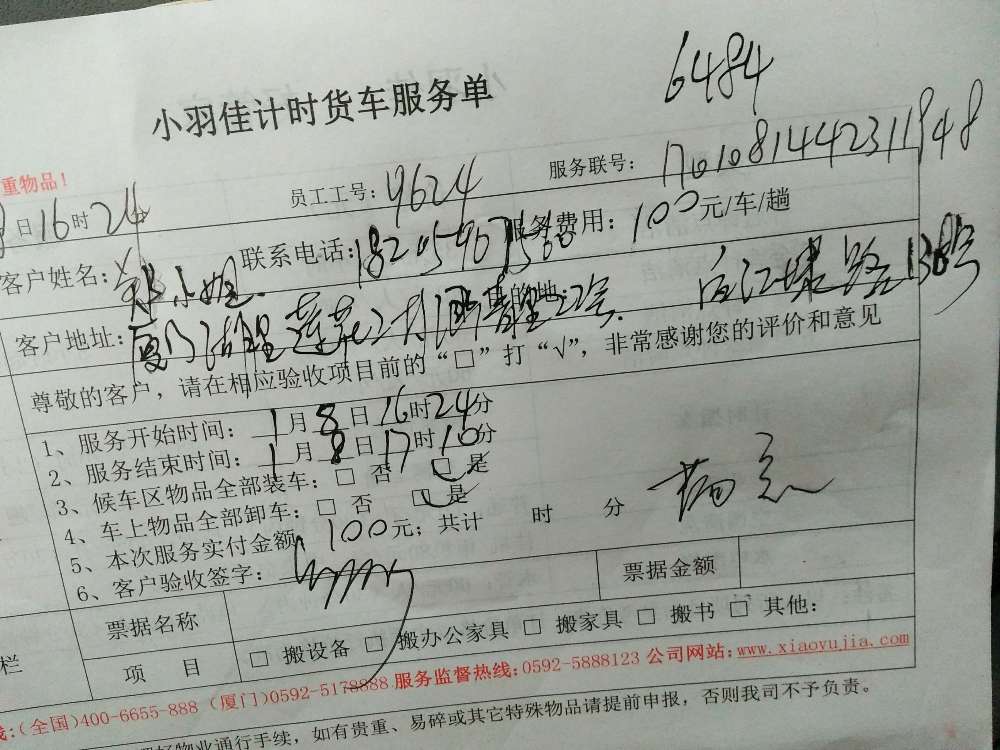 6484
小羽佳计时货车服务单
重物品！
日16时24 员工工号：9624 服务联号：1701081442311848
客户姓名： 小姐 联系电话： 服务费用：100元/车/趟
客户地址：厦门 湖里 莲花 目的地： 路138号
尊敬的客户，请在相应验收项目前的“□”打“√”，非常感谢您的评价和意见
1、服务开始时间：1月8日16时24分
2、服务结束时间：1月8日17时10分
3、候车区物品全部装车：□ 否 □ 是
4、车上物品全部卸车：□ 否 □ 是
5、本次服务实付金额：100元；共计 时 分
6、客户验收签字：
票据名称 票据金额
栏 项 目 □ 搬设备 □ 搬办公家具 □ 搬家具 □ 搬书 □ 其他：
线：(全国)400-6655-888 (厦门)0592-5178888 服务监督热线：0592-5888123 公司网站：www.xiaoyujia.com
好物业通行手续，如有贵重、易碎或其它特殊物品请提前申报，否则我司不予负责。